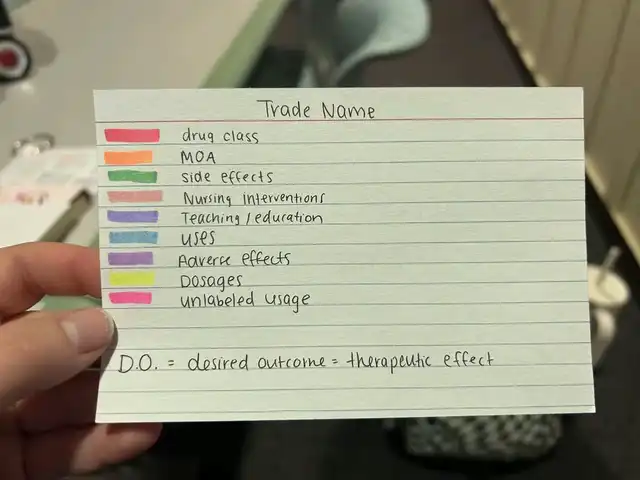 Trade Name
drug class
MOA
side effects
Nursing Interventions
Teaching/education
uses
Adverse effects
Dosages
unlabeled usage
D.O. = desired outcome = therapeutic effect